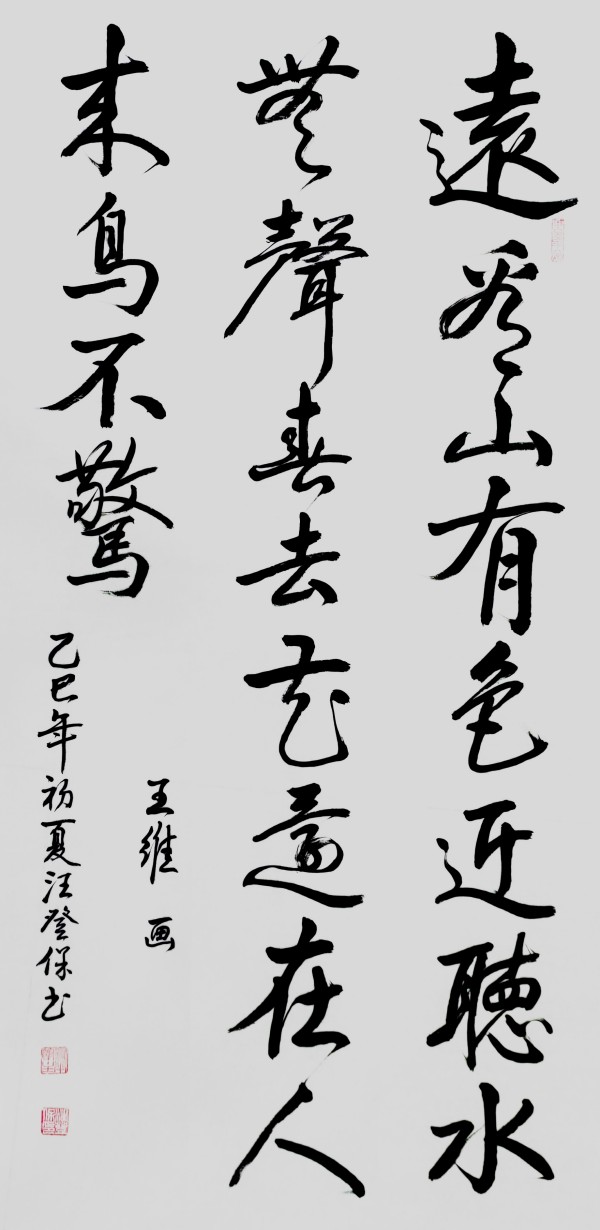 遠看山有色近聽水
無聲春去花還在人
来鳥不驚
王維 画
乙巳年初夏汪登保书